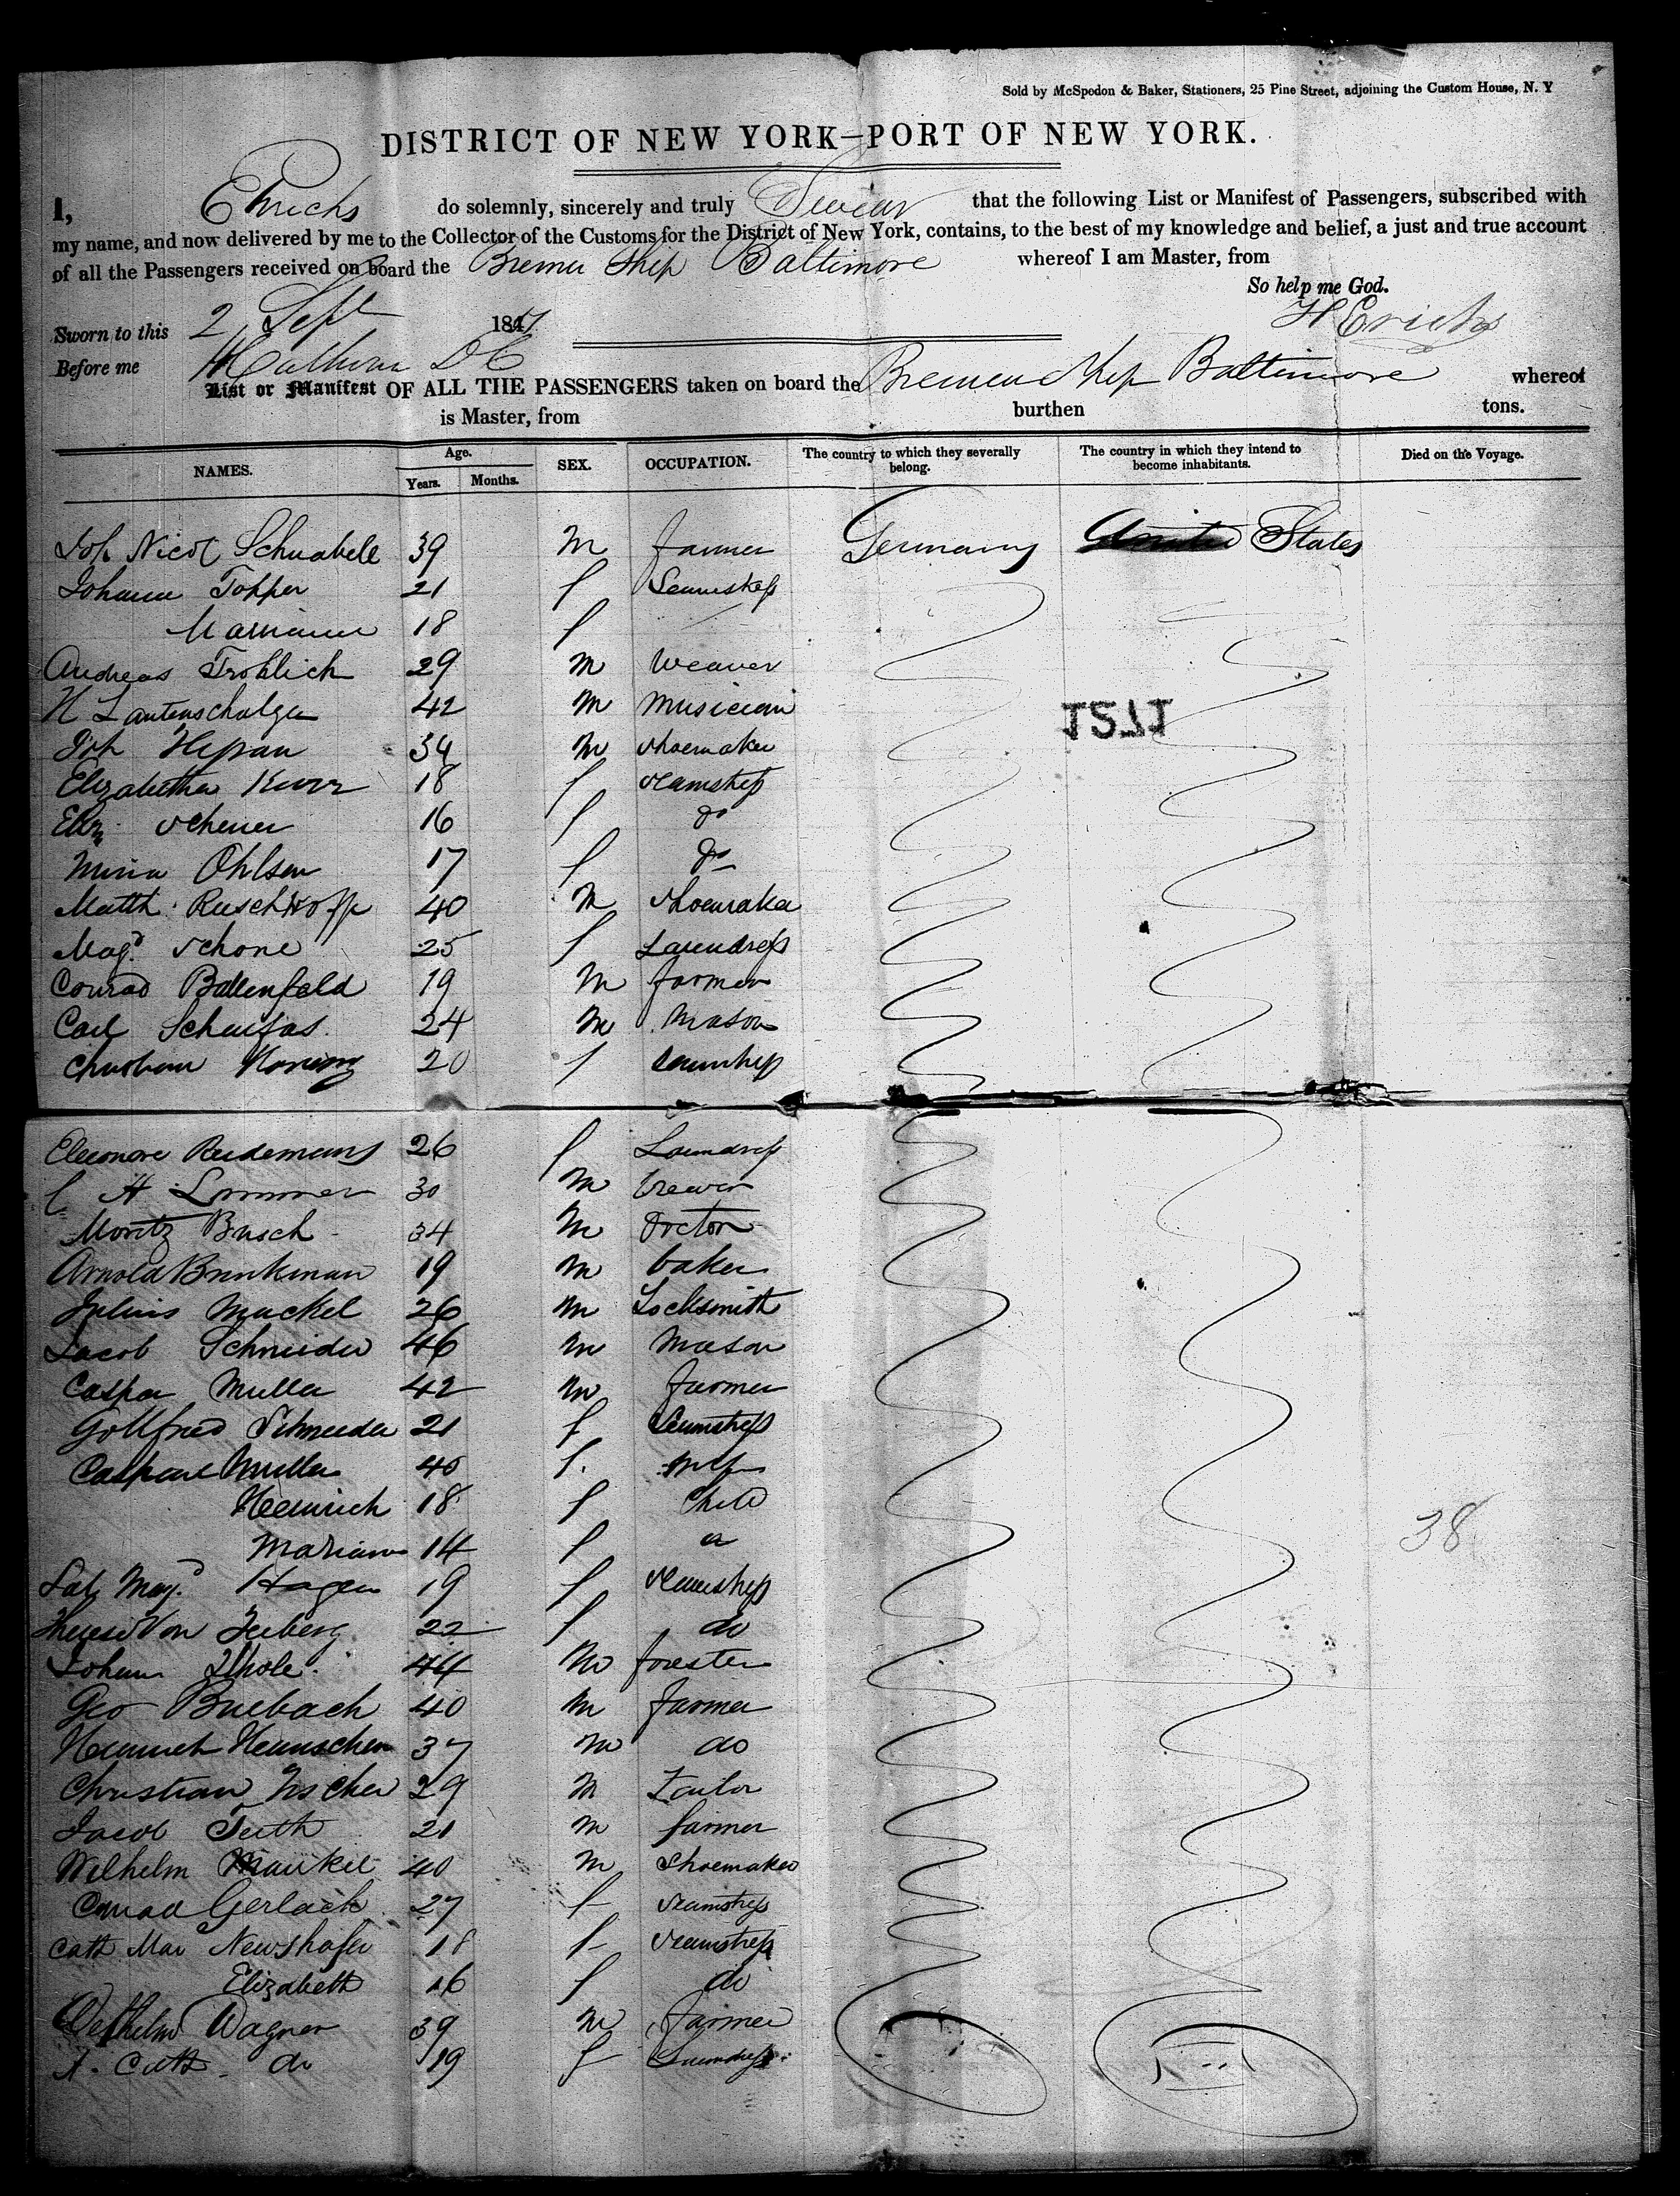 Sold by McSpedon & Baker, Stationers, 25 Pine Street, adjoining the Custom House, N. Y
DISTRICT OF NEW YORK—PORT OF NEW YORK.
I, Ehrichs do solemnly, sincerely and truly Swear that the following List or Manifest of Passengers, subscribed with
my name, and now delivered by me to the Collector of the Customs for the District of New York, contains, to the best of my knowledge and belief, a just and true account
of all the Passengers received on board the Bremer Ship Baltimore whereof I am Master, from
So help me God.
Sworn to this 2 Sept 1847
Before me
List or Manifest OF ALL THE PASSENGERS taken on board the Bremen Ship Baltimore whereof
is Master, from burthen tons.
NAMES. Age. Years. Months. SEX. OCCUPATION. The country to which they severally belong. The country in which they intend to become inhabitants. Died on the Voyage.
Joh Nicol Schnabell 39 m farmer Germany United States
Johann Topper 21 f
18 f
Andreas Frohlich 29 m weaver
H Lautenschalger 42 m musician
Joh 34 m shoemaker
Elizabetha 18 f seamstress
Eliz. scherer 16 f do
Ohlsen 17 f do
Matth. Ruschhoff 40 m shoemaker
Magd schone 25 f Laundress
Conrad Battenfeld 19 m farmer
Carl Schuifas 24 m Mason
20 f
Eleonore Rudemans 26 f Laundress
C H Lommer 30 m brewer
Moritz Busch 34 m doctor
Arnold Brinkman 19 m baker
Julius Muckel 26 m Locksmith
Jacob Schneider 46 m mason
Caspar Muller 42 m farmer
Gottfried Schneider 21 f Seamstress
Muller 40 f. wife
Heinrich 18 f child
Mariane 14 f
Magd Hagen 19 f seamstress
Von 22 f do
Johann 44 m forester
Geo Buebach 40 m farmer
Heinrich 37 m do
Christian 29 m Tailor
Jacob Teith 21 m farmer
Wilhelm Mankel 40 m Shoemaker
Conrad Gerlach 27 f seamstress
Cath Mar Newshafer 18 f seamstress
Elizabeth 16 f do
Wagner 39 m farmer
Cath do 19 f
38